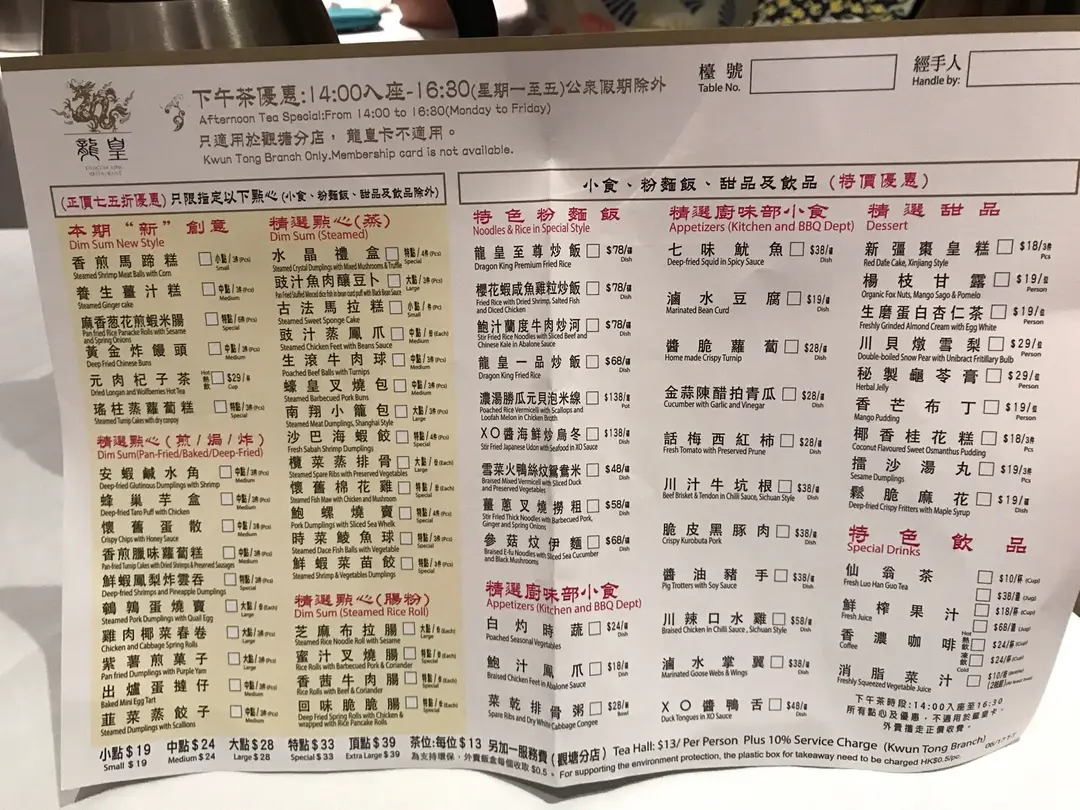 龍皇
下午茶優惠:14:00入座-16:30(星期一至五)公眾假期除外
Afternoon Tea Special:From 14:00 to 16:30(Monday to Friday)
只適用於觀塘分店，龍皇卡不適用。
Kwun Tong Branch Only.Membership card is not available.
檯號
Table No.
經手人
Handle by:
(正價七五折優惠) 只限指定以下點心 (小食、粉麵飯、甜品及飲品除外)
本期"新"創意
Dim Sum New Style
香煎馬蹄糕 小點/3件(Pcs)
Steamed Shrimp Meat Balls with Corn Small
養生薑汁糕 中點/3件(Pcs)
Steamed Ginger cake Medium
麻香葱花煎蝦米腸 特點/6件(Pcs)
Pan fried Rice Panacke Rolls with Sesame and Spring Onions Special
黃金炸饅頭 中點/3件(Pcs)
Deep Fried Chinese Buns Medium
元肉杞子茶 Hot 熱飲 $29/位
Dried Longan and Wolfberries Hot Tea Cup
瑤柱蒸蘿蔔糕 特點/3件(Pcs)
Steamed Turnip Cakes with dry conpoy Special
精選點心(煎/焗/炸)
Dim Sum(Pan-Fried/Baked/Deep-Fried)
安蝦鹹水角 中點/3件(Pcs)
Deep-fried Glutinous Dumplings with Shrimp Medium
蜂巢芋盒 中點/3件(Pcs)
Deep-fried Taro Puff with Chicken Medium
懷舊蛋散 中點/3件(Pcs)
Crispy Chips with Honey Sauce Medium
香煎臘味蘿蔔糕 中點/3件(Pcs)
Pan-fried Turnip Cakes with Dried Shrimps & Preserved Sausages Medium
鮮蝦鳳梨炸雲吞 特點/3件(Pcs)
Deep-fried Shrimps and Pineapple Dumplings Special
鵪鶉蛋燒賣 大點/各(Each)
Steamed Pork Dumplings with Quail Egg Large
雞肉椰菜春卷 大點/3件(Pcs)
Chicken and Cabbage Spring Rolls Large
紫薯煎菓子 大點/3件(Pcs)
Pan fried Dumplings with Purple Yam Large
出爐蛋撻仔 中點/3件(Pcs)
Baked Mini Egg Tart Medium
韮菜蒸餃子 中點/3件(Pcs)
Steamed Dumplings with Scallions Medium
精選點心(蒸)
Dim Sum (Steamed)
水晶禮盒 特點/4件(Pcs)
Steamed Crystal Dumplings with Mixed Mushrooms & Truffle Special
豉汁魚肉釀豆卜 大點/3件(Pcs)
Pan Fried Stuffed Menced dice fish in bean curd puff with Black Bean Sauce Large
古法馬拉糕 小點/件(Pcs)
Steamed Sweet Sponge Cake Small
豉汁蒸鳳爪 中點/各(Each)
Steamed Chicken Feet with Beans Sauce Medium
生滾牛肉球 中點/3件(Pcs)
Poached Beef Balls with Turnips Medium
蠔皇叉燒包 中點/3件(Pcs)
Steamed Barbecued Pork Buns Medium
南翔小籠包 大點/3件(Pcs)
Steamed Meat Dumplings, Shanghai Style Large
沙巴海蝦餃 特點/4件(Pcs)
Fresh Sabah Shrimp Dumplings Special
欖菜蒸排骨 大點/各(Each)
Steamed Spare Ribs with Preserved Vegetables Large
懷舊棉花雞 特點/各(Each)
Steamed Fish Maw with Chicken and Mushroom Special
鮑螺燒賣 特點/4件(Pcs)
Pork Dumplings with Sliced Sea Whelk Special
時菜鯪魚球 特點/3件(Pcs)
Steamed Dace Fish Balls with Vegetable Special
鮮蝦菜苗餃 特點/3件(Pcs)
Steamed Shrimp & Vegetables Dumplings Special
精選點心(腸粉)
Dim Sum (Steamed Rice Roll)
芝麻布拉腸 大點/各(Each)
Steamed Rice Noodle Roll with Sesame Large
蜜汁叉燒腸 特點/各(Each)
Rice Rolls with Barbecued Pork & Coriander Special
香茜牛肉腸 特點/各(Each)
Rice Rolls with Beef & Coriander Special
回味脆脆腸 特點/各(Each)
Deep Fried Spring Rolls with Chicken & wrapped with Rice Pancake Rolls Special
小食、粉麵飯、甜品及飲品 (特價優惠)
特色粉麵飯
Noodles & Rice in Special Style
龍皇至尊炒飯 $78/碟
Dragon King Premium Fried Rice Dish
櫻花蝦咸魚雞粒炒飯 $78/碟
Fried Rice with Dried Shrimp, Salted Fish and Diced Chicken Dish
鮑汁蘭度牛肉炒河 $78/碟
Stir Fried Rice Noodles with Sliced Beef and Chinese Kale in Abalone Sauce Dish
龍皇一品炒飯 $68/碟
Dragon King Fried Rice Dish
濃湯勝瓜元貝泡米線 $138/煲
Poached Rice Vermicell with Scallops and Loofah Melon in Chicken Broth Pot
XO醬海鮮炒烏冬 $138/碟
Stir Fried Japanese Udon with Seafood in XO Sauce Dish
雪菜火鴨絲炆鴛鴦米 $48/碟
Braised Mixed Vermicell with Sliced Duck and Preserved Vegetables Dish
薑蔥叉燒撈粗 $58/碟
Stir Fried Thick Noodles with Barbecued Pork, Ginger and Spring Onions Dish
參菇炆伊麵 $68/碟
Braised E-fu Noodles with Sliced Sea Cucumber and Black Mushrooms Dish
精選廚味部小食
Appetizers (Kitchen and BBQ Dept)
白灼時蔬 $24/碟
Poached Seasonal Vegetables Dish
鮑汁鳳爪 $18/碟
Braised Chicken Feet in Abalone Sauce Dish
菜乾排骨粥 $28/碗
Spare Ribs and Dry White Cabbage Congee Bowl
精選廚味部小食
Appetizers (Kitchen and BBQ Dept)
七味魷魚 $38/碟
Deep-fried Squid in Spicy Sauce Dish
滷水豆腐 $19/碟
Marinated Bean Curd Dish
醬脆蘿蔔 $28/碟
Home made Crispy Turnip Dish
金蒜陳醋拍青瓜 $28/碟
Cucumber with Garlic and Vinegar Dish
話梅西紅柿 $28/碟
Fresh Tomato with Preserved Prune Dish
川汁牛坑根 $38/碟
Beef Brisket & Tendon in Chilli Sauce, Sichuan Style Dish
脆皮黑豚肉 $38/碟
Crispy Kurobuta Pork Dish
醬油豬手 $38/碟
Pig Trotters with Soy Sauce Dish
川辣口水雞 $58/碟
Braised Chicken in Chilli Sauce , Sichuan Style Dish
滷水掌翼 $38/碟
Marinated Goose Webs & Wings Dish
XO醬鴨舌 $48/碟
Duck Tongues in XO Sauce Dish
精選甜品
Dessert
新彊棗皇糕 $18/3件
Red Date Cake, Xinjiang Style Pcs
楊枝甘露 $19/位
Organic Fox Nuts, Mango Sago & Pomelo Person
生磨蛋白杏仁茶 $19/位
Freshly Grinded Almond Cream with Egg White Person
川貝燉雪梨 $29/位
Double-boiled Snow Pear with Unibract Fritillary Bulb Person
秘製龜苓膏 $29/位
Herbal Jelly Person
香芒布丁 $19/位
Mango Pudding Person
椰香桂花糕 $18/3件
Coconut Flavoured Sweet Osmanthus Pudding Pcs
擂沙湯丸 $19/3件
Sesame Dumplings Pcs
鬆脆麻花 $19/碟
Deep-fried Crispy Fritters with Maple Syrup Dish
特色飲品
Special Drinks
仙翁茶 $10/杯(Cup)
Fresh Luo Han Guo Tea $38/壺(Jug)
鮮榨果汁 $18/杯(Cup)
Fresh Juice $68/壺(Jug)
香濃咖啡 Hot 熱飲 $24/杯(Cup)
Coffee 凍飲 Cold $24/杯(Cup)
消脂菜汁 $10/
Freshly Squeezed Vegetable Juice
下午茶時段:14:00入座至16:30
所有點心及優惠，不適用於龍皇卡，
外賣攜走正價收費。
小點$19 中點$24 大點$28 特點$33 頂點$39 茶位:每位$13 另加一服務費(觀塘分店) Tea Hall: $13/ Per Person Plus 10% Service Charge (Kwun Tong Branch)
Small $19 Medium $24 Large $28 Special $33 Extra Large $39 為支持環保，外賣飯盒每個收取$0.5。 For supporting the environment protection, the plastic box for takeaway need to be charged HK$0.5/pc.